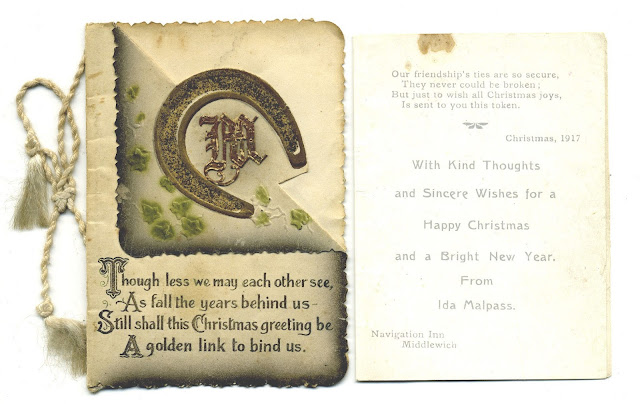 M
Though less we may each other see,
As fall the years behind us—
Still shall this Christmas greeting be
A golden link to bind us.
Our friendship's ties are so secure,
They never could be broken;
But just to wish all Christmas joys,
Is sent to you this token.
Christmas, 1917
With Kind Thoughts
and Sincere Wishes for a
Happy Christmas
and a Bright New Year.
From
Ida Malpass.
Navigation Inn
Middlewich